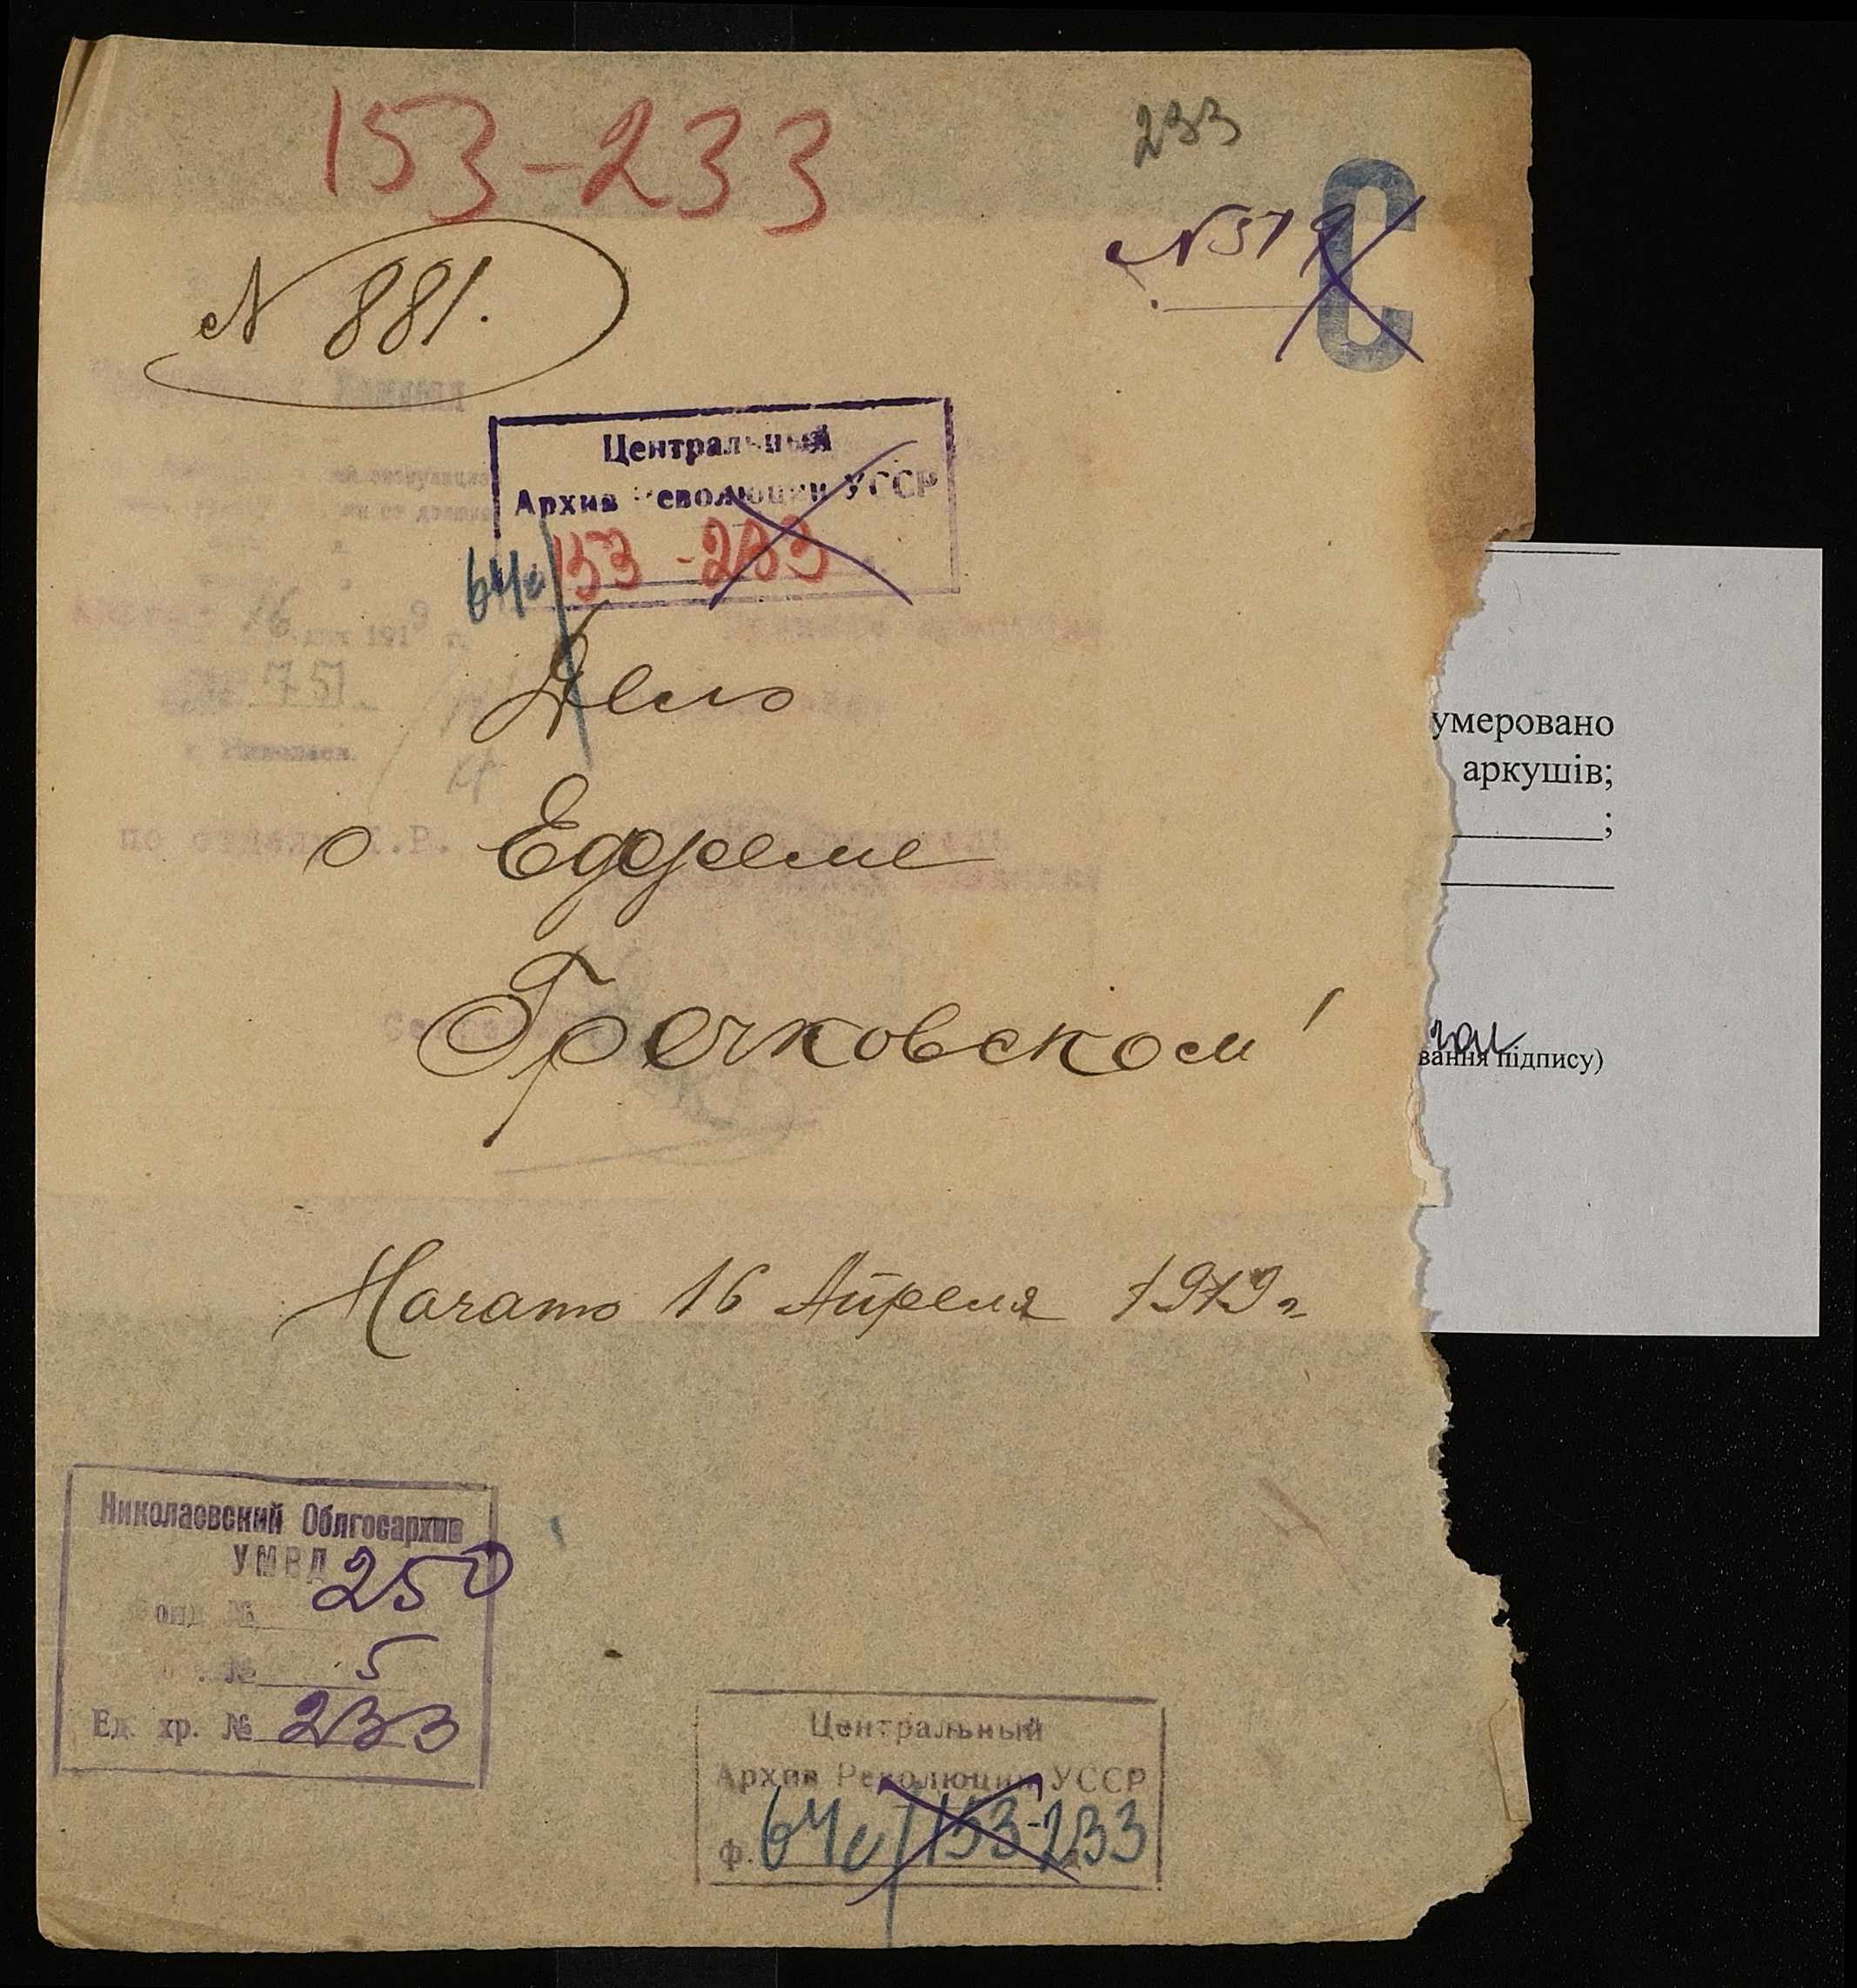 153-233
233
№ 379
С
№ 881.
Центральный
Архив Революции УССР
64с/153-233
Дело
о Ефреме
Гречковском
Начато 16 Апреля 1919 г.
умеровано
аркушів;
;
вання підпису)
16 1919 г.
№ 751
г. Николаев.
по отделу
Николаевский Облгосархив
УМВД
Фонд № 250
№ 5
Ед. хр. № 233
Центральный
Архив Революции УССР
ф. 64с/153-233